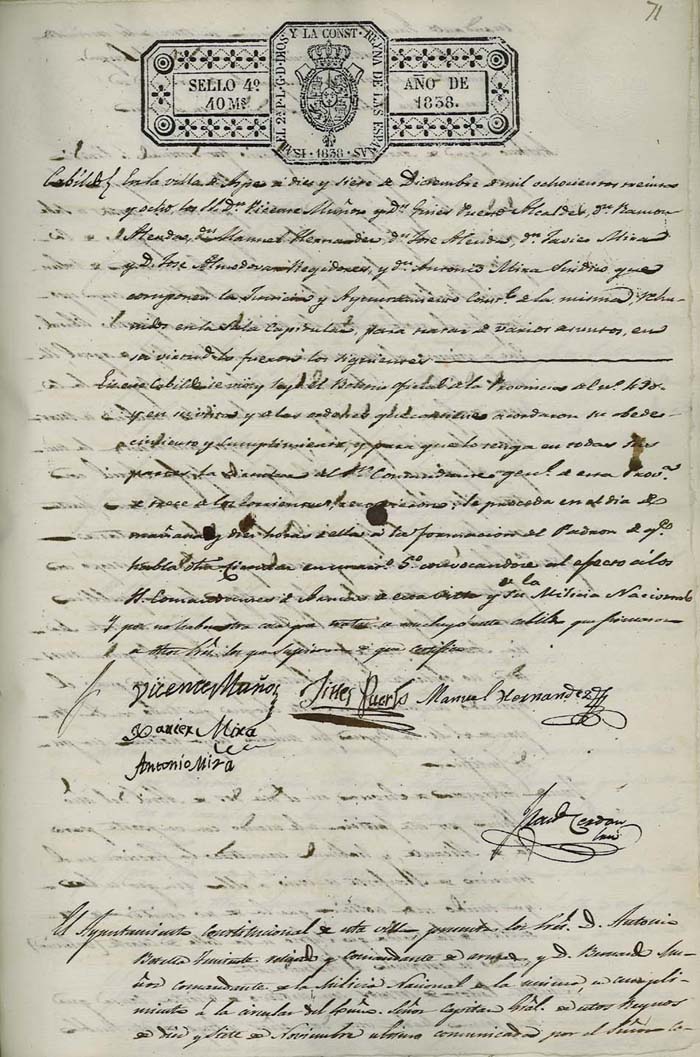 71
SELLO 4º
40 Ms
ISABEL 2ª P. L. G. D. DIOS Y LA CONST. REYNA DE LAS ESPAÑAS
· 1838 ·
AÑO DE
1838.
Cabildo En la villa de Aspe a dies y siete de Diciembre de mil ochocientos treinta
y ocho, los SS. Dn. Vicente Muñoz y Dn. Gines Puerto Alcaldes, Dn. Ramon
Alenda, Dn. Manuel Hernandez, Dn. Jose Alenda, Dn. Javier Mira
y D. Jose Almodovar Regidores, y Dn. Antonio Mira Sindico que
componen la Justicia y Ayuntamiento Constl. de la misma, rehu-
nidos en la Sala Capitular, para tratar de varios asuntos, en
su virtud lo fueron los siguientes
En este Cabildo se vio y leyo el Boletin oficial de la Provincia de nº
y en su vista y de las ordenes que contiene acordaron su obede-
cimiento y cumplimiento, y para que lo tenga en todas sus
partes, la circular del Sr. Comandante genl. de esta Prova.
de trece de los corrientes, se proceda en el dia de
mañana y diez horas de ella a la formacion del Padron de qe.
habla otra circular convocandose al efecto a los
SS. Comandantes de Armas de esta villa y de la Milicia Nacional
Y por no haber otra cosa que tratar se concluyo este cabildo que firmaron
a otros Sres. los que supieron de que certifico
Vicente Muñoz Jines Puerto Manuel Hernandez
Xavier Mira
Antonio Mira
Cerdan
El Ayuntamiento constitucional de esta villa, presentes los Sres. D. Antonio
retirado y comandante de armas, y D. Bernardo Mu-
ñoz comandante de la Milicia Nacional de la misma, en cumpli-
miento a la circular del Exmo. Señor capitan Gral. de estos Reynos
de diez y siete de Noviembre ultimo comunicada por el Señor Co-